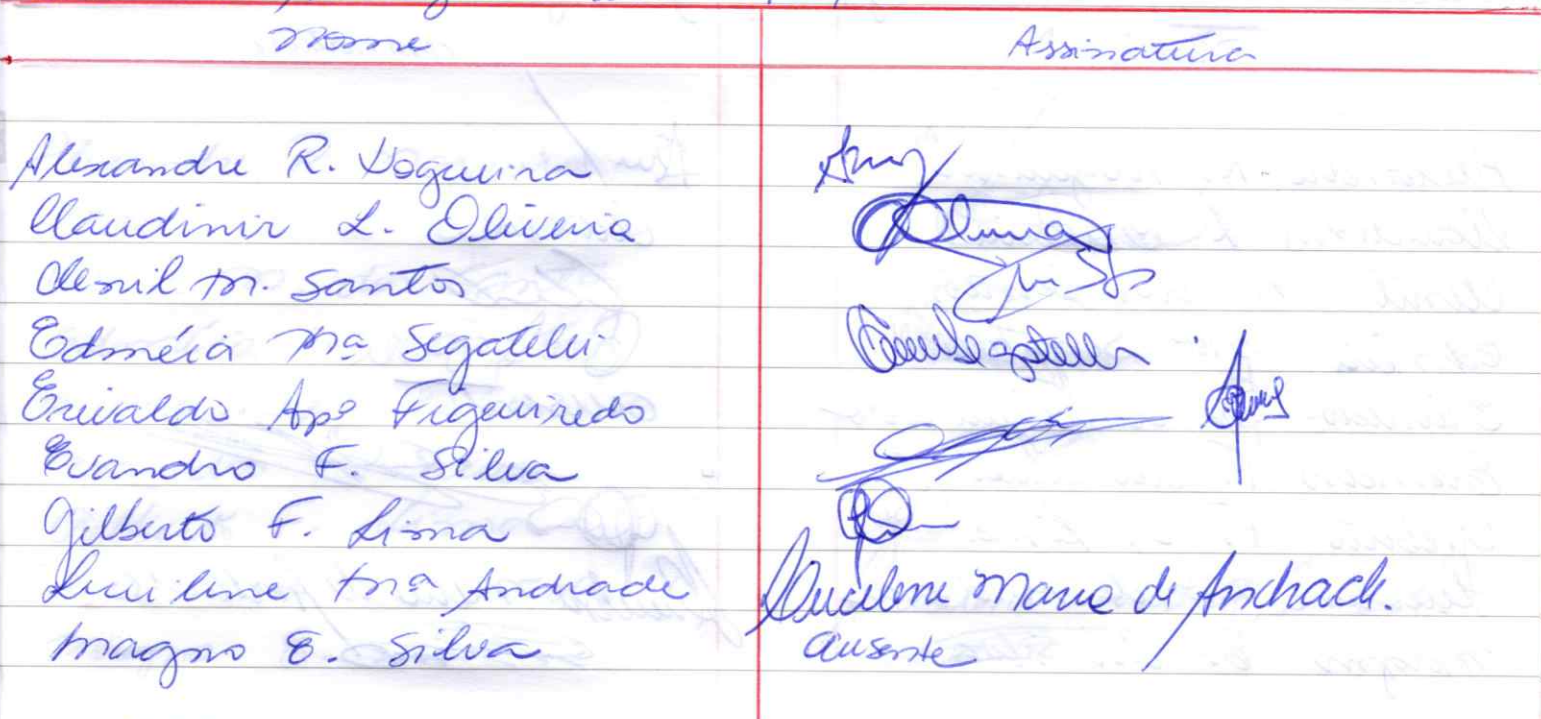 Nome Assinatura
Alexandre R. Nogueira
Claudinir L. Oliveira
Clenil M. Santos
Edméia Mª Segatelli
Erivaldo Apº Figueiredo
Evandro F. Silva
Gilberto F. Lima
Lucilene Mª Andrade Lucilene Maria de Andrade.
Magno E. Silva ausente